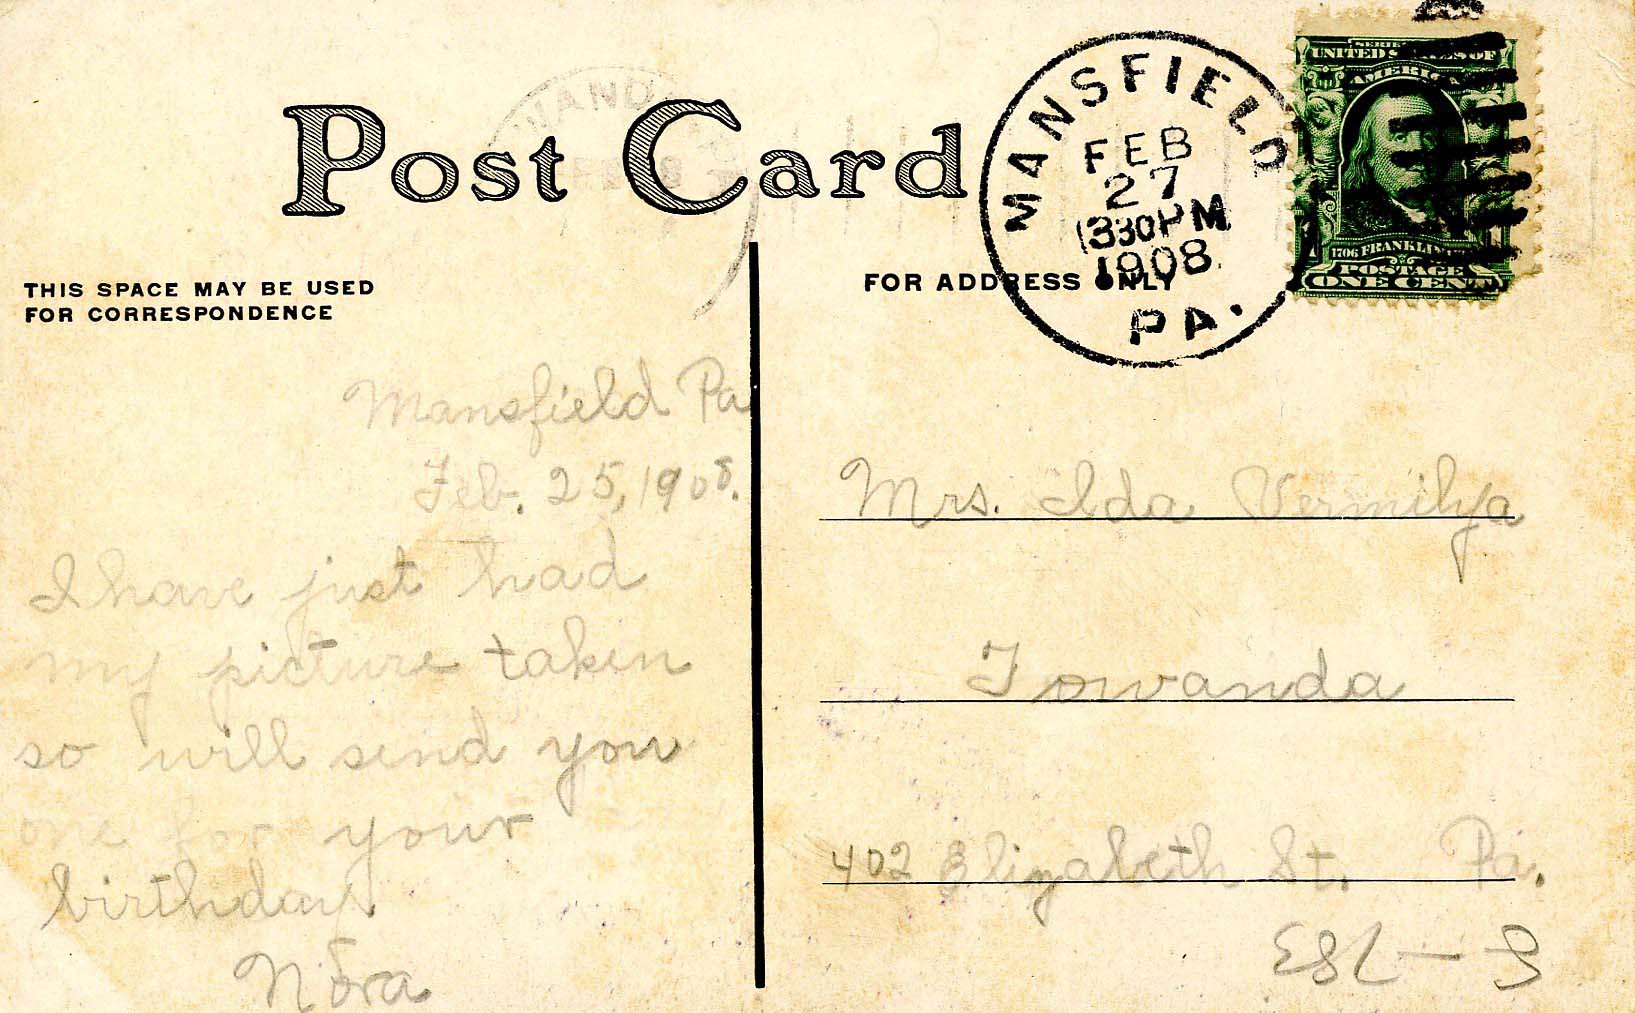 Post Card
THIS SPACE MAY BE USED
FOR CORRESPONDENCE
FOR ADDRESS ONLY
MANSFIELD
FEB
27
330PM
1908
PA.
UNITED STATES OF
AMERICA
1706 FRANKLIN
POSTAGE
ONE CENT
Mansfield Pa
Feb. 25, 1908.
I have just had
my picture taken
so will send you
one for your
birthday.
Nora
Mrs. Ida Vermilya
Towanda
402 Elizabeth St. Pa.